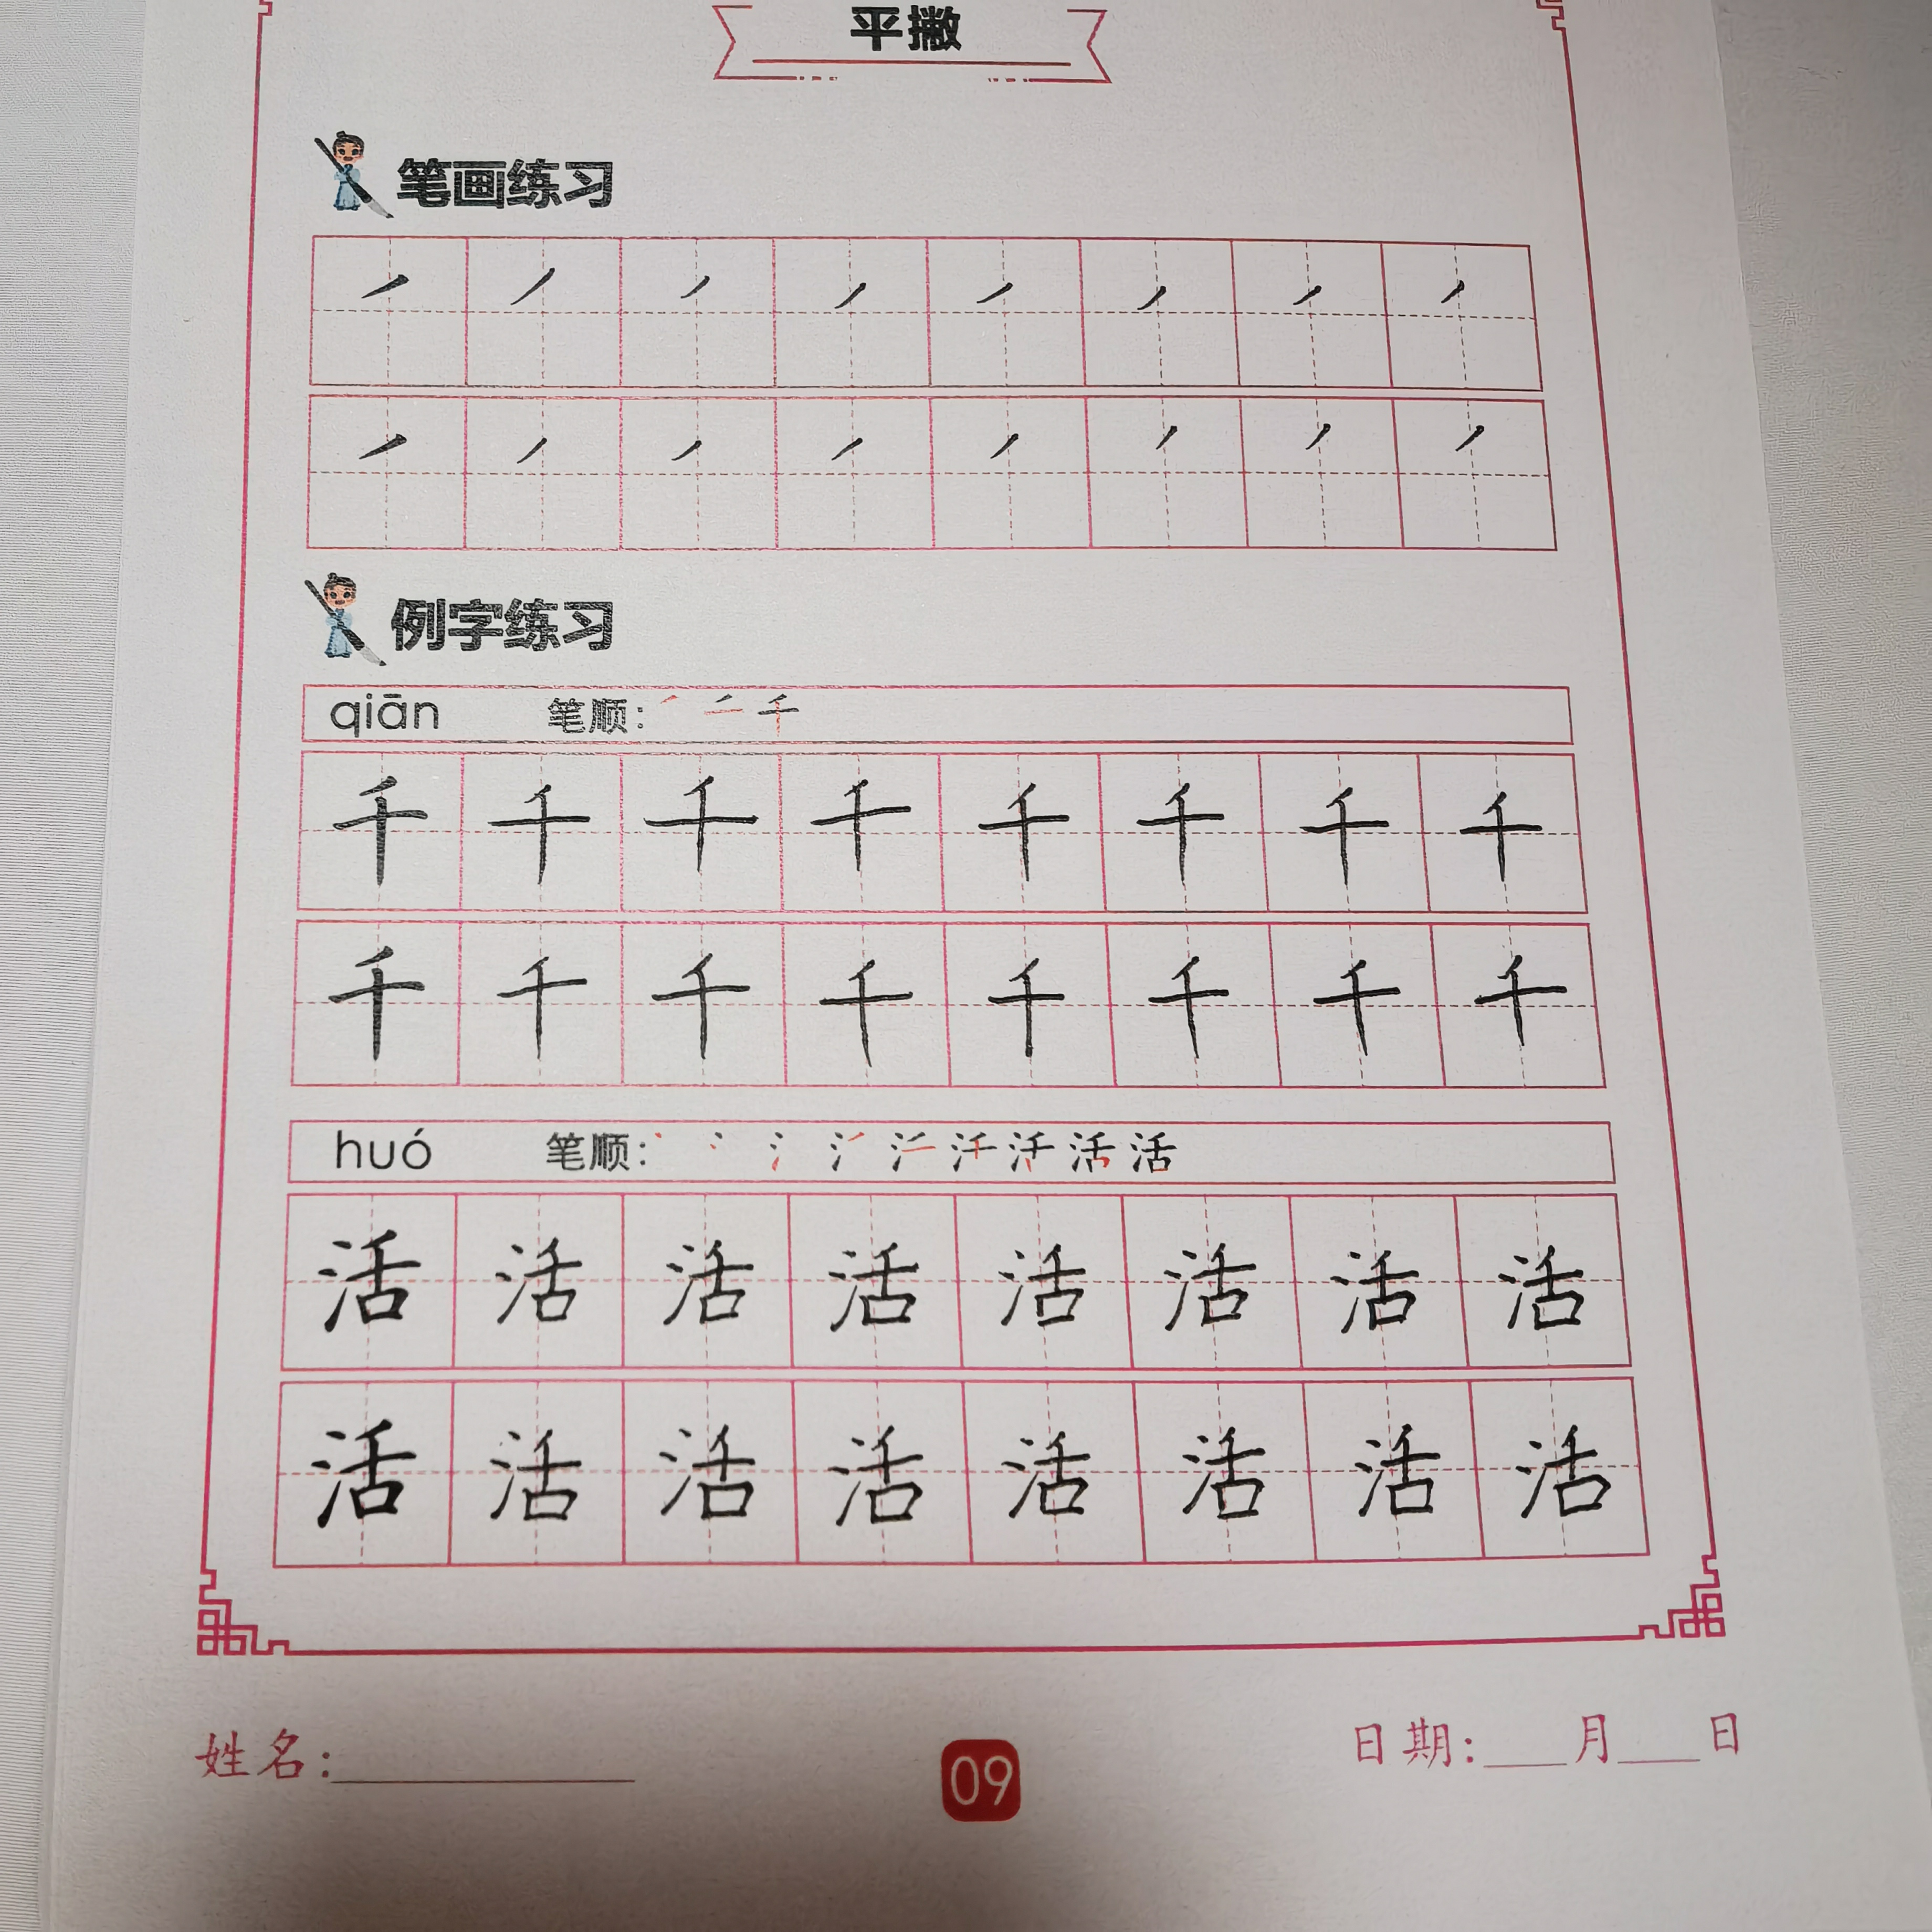 平撇
笔画练习
例字练习
qiān 笔顺:
千 千 千 千 千 千 千 千
千 千 千 千 千 千 千 千
huó 笔顺:
活 活 活 活 活 活 活 活
活 活 活 活 活 活 活 活
姓名:
09
日期: 月 日